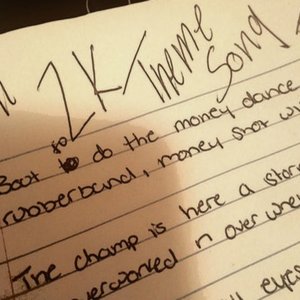 ZK/Theme Song
Boot so do the money dance
rubberband, money shot
The champ is here a
overworked n over
eyes